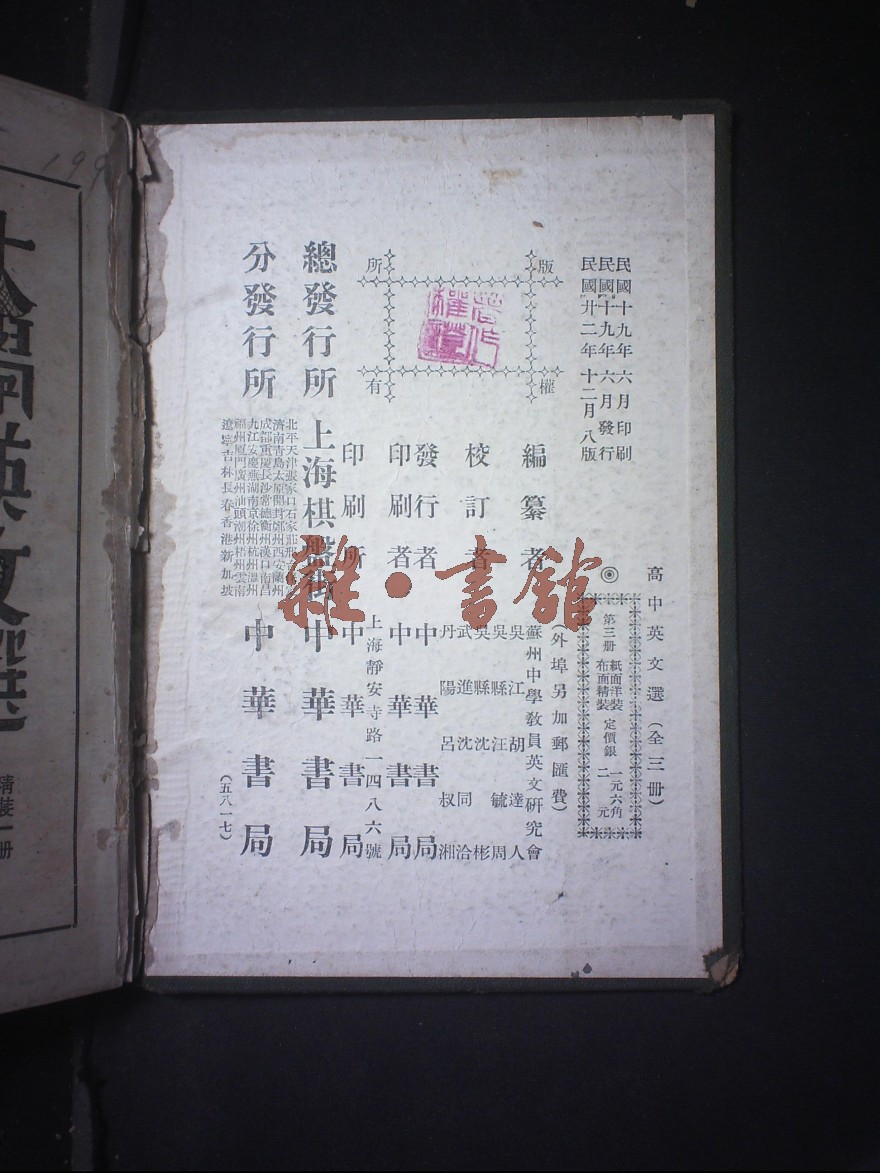 民國十九年六月印刷
民國十九年六月發行
民國廿二年十二月八版
版權所有
著作權證
高中英文選(全三册)
◎
第三册
紙面洋裝 定價銀 一元六角
布面精裝 二元
(外埠另加郵匯費)
編纂者 蘇州中學教員英文研究會
校訂者
吳江胡達人
吳縣汪毓周
吳縣沈彬
武進沈同洽
丹陽呂叔湘
發行者 中華書局
印刷者 中華書局
印刷所 上海靜安寺路一四八六號 中華書局
總發行所 上海棋盤街 中華書局
分發行所
北平天津張家口石家莊邢
濟南青島太原開封鄭州西安蘭州
成都重慶長沙常德衡州漢口南昌
九江安慶蕪湖南京徐州杭州溫州
福州廈門廣州汕頭潮州梧州雲南
遼寧吉林長春香港新加坡
中華書局
(五八一七)
雜·書館
199
英文選
精裝一册